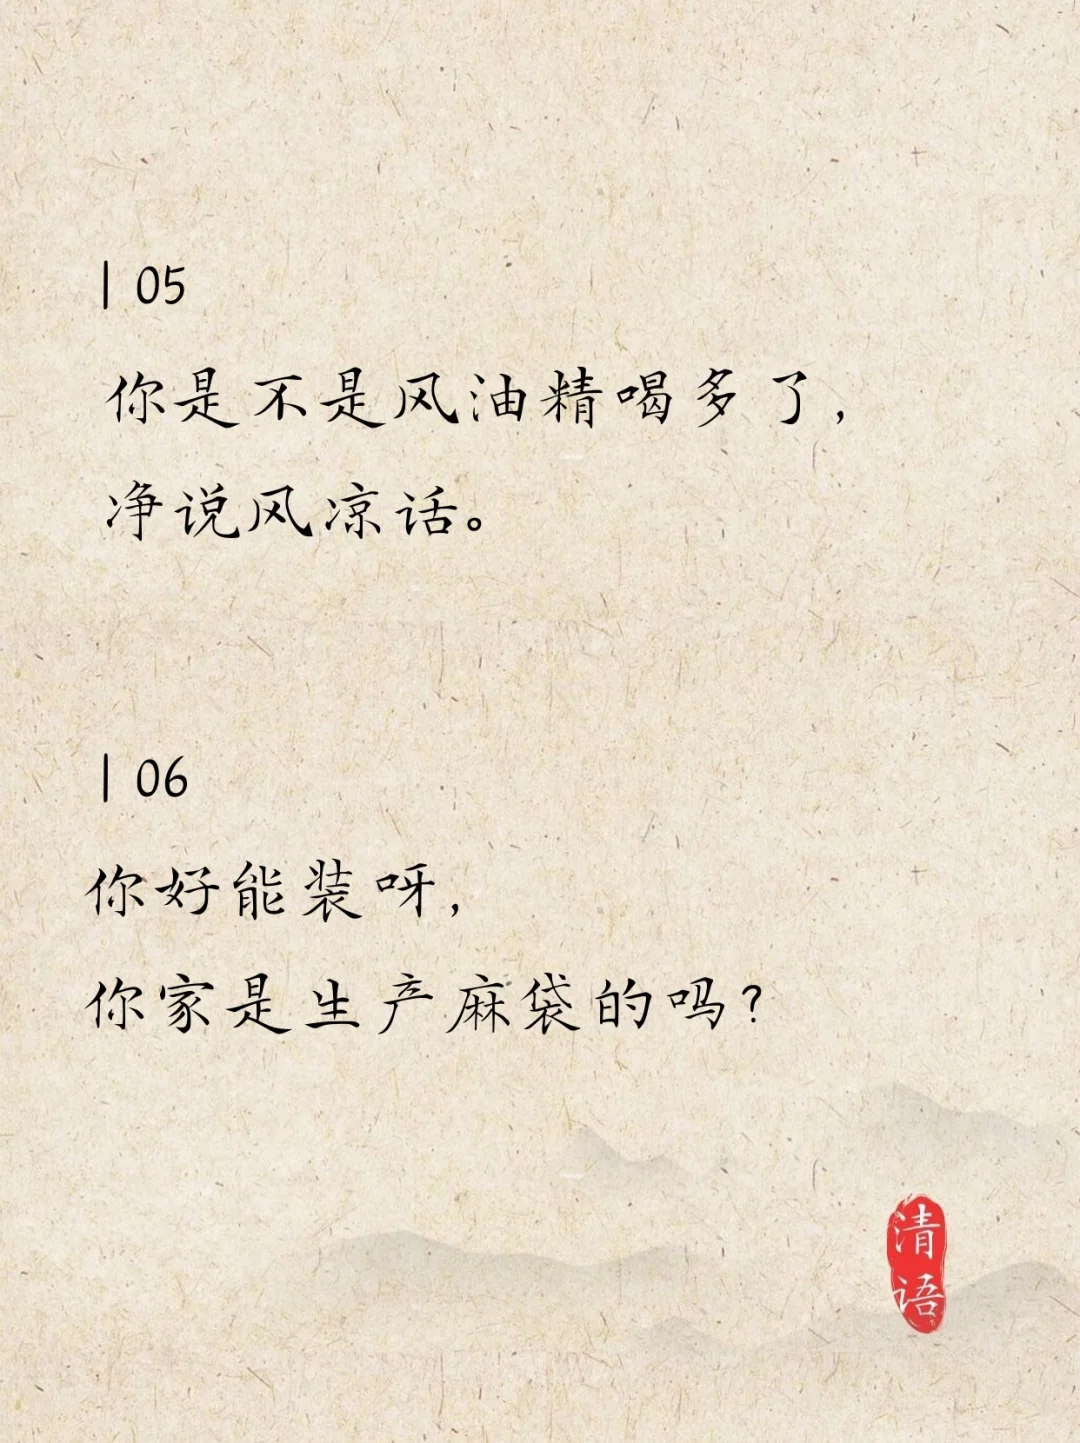 | 05
你是不是风油精喝多了，
净说风凉话。
| 06
你好能装呀，
你家是生产麻袋的吗？
清语